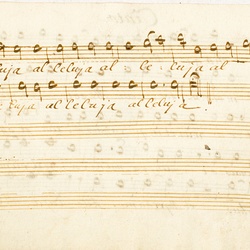 luja al leluja al le luja al
luja al leluja alleluja.